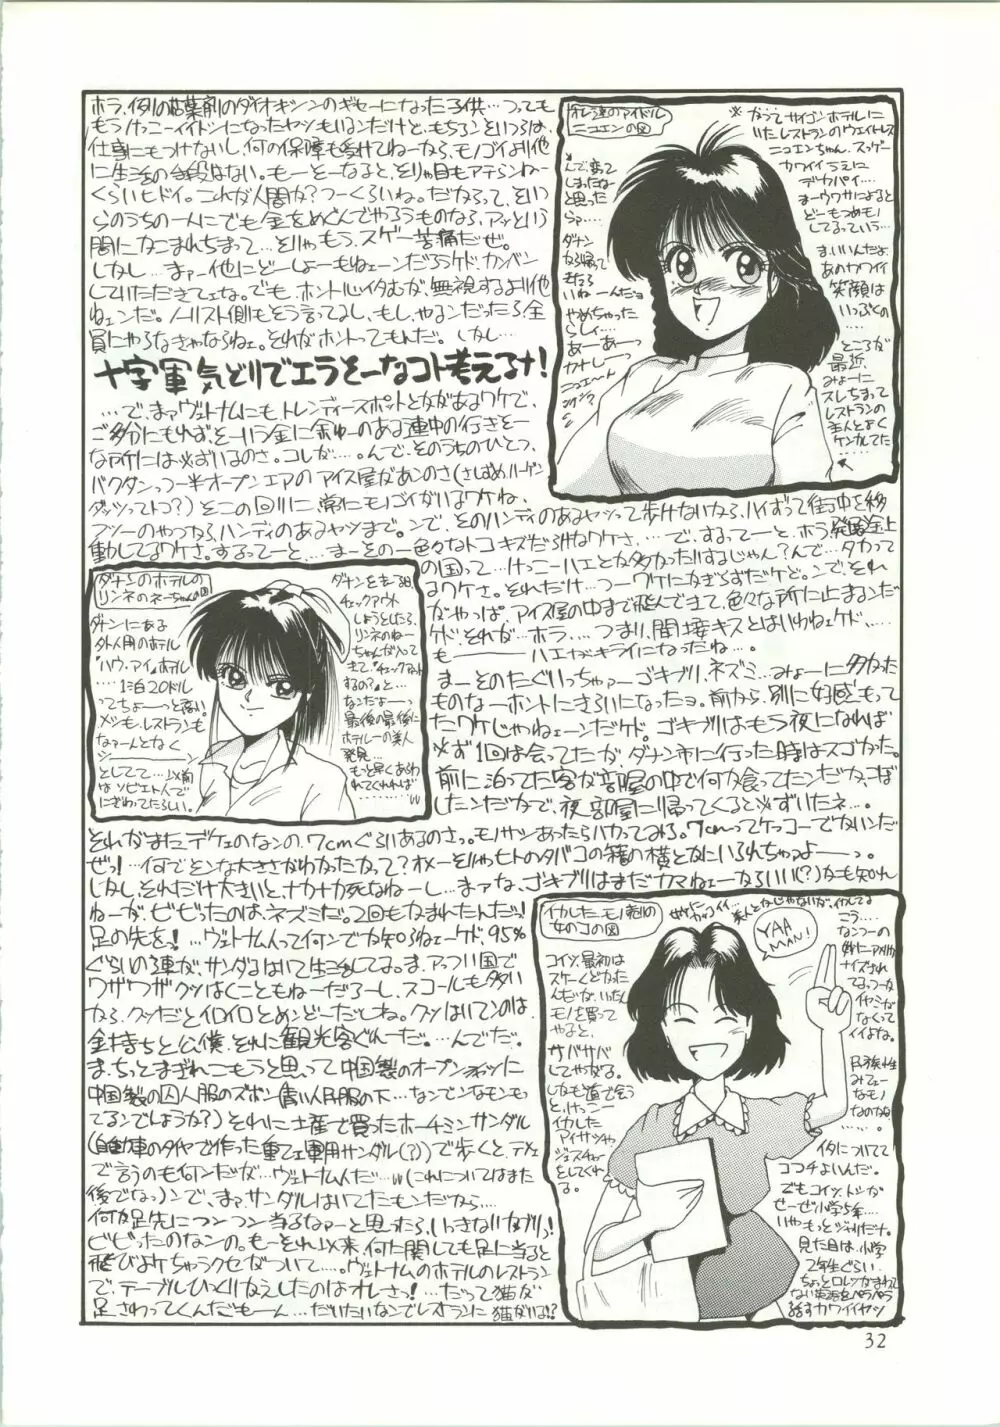 ホラ、例の枯葉剤のダイオキシンのギセーになった子供…つっても
もうけっこーイイトシになったヤツもいるンだけど、もちろんそういうのは、
仕事にもつけないし、何の保障も受けてねーから、モノゴイより他
に生活の手段はない。もーそーなると、そりゃ目もアテらんねー
くらいヒドイ。これが人間か?つーくらいね。だからって、そいつ
らのうちの一人にでも金をめぐんでやろうものなら、アッという
間にかこまれちまって…そりゃもう、スゲー苦痛だぜ。
しかし…まァー他にどーしょーもねェーンだろうケド、カンベン
していただきてェな。でも、ホント心イタむが、無視するより他
ねェンだ。ノーリスト側もそう言ってるし、もし、やるンだったら全
員にやらなきゃならねェ。それがホントってもんだ。しかし…
十字軍気どりでエラそーなコト考えるナ!
…で、まァヴェトナムにもトレンディースポットとかがあるワケで、
ご多分にもれず、そーいう金に余ゆーのある連中の行きそー
な所には必ずいるのさ。コレが…。んで、そのうちのひとつ、
バクダンっつー半オープンエアのアイス屋があンのさ(さしずめハーゲン
ダッツってトコ?)そこの回りに、常にモノゴイがいるワケね、
フツーのやつから、ハンディのあるヤツまで。ンで、そのハンディのあるヤツって歩けないから、ハイずって街中を移
動してるワケさ。するってーと……まーその一色々なトコキズだらけなワケさ、…で、するってーと、ホラ発展途上
の国って…けっこーハエとか多かったりするじゃん?んで…タカって
るワケさ。それだけ…つーワケにはかぎらずだケど。ンで、それ
がやっぱ、アイス屋の中まで飛んできて、色々な所に止まるンだ
ケド、それが…ホラ…、つまり、間接キスとはいわねェケド、…
も――――ハエがキライになったね…。
まーそのたぐいっちゃァーゴキブリ、ネズミ…みょーに多かった
ものなーホントにきらいになったョ。前から、別に好感もって
たワケじゃねェーンだケド。ゴキブリはもう夜になれば
必ず1回は会ってたが、ダナン市に行った時はスゴかった。
前に泊ってた客が部屋の中で何か食ってたンだか、こぼ
したンだかで、夜部屋に帰ってくると必ずいたネ…。
それがまたデケェのなんの、7cmぐらいあるのさっ。モノサシあったらハカってみろ。7cmってケッコーでかいンだ
ぜ!…何でそンな大きさがわかったかって?オメーそりゃヒトのタバコの箱の横とかにいられちゃうよーっ。
しかし、それだけ大きいと、ナカナカ死なねーし…まァな、ゴキブリはまだカマねェーからいい(?)かも知れ
ねーが、ビビったのは、ネズミだ。2回もかまれたんだっ!
足の先をっ!…ヴェトナム人って何ンでか知らねェーケド、95%
ぐらいの連中が、サンダルはいて生活してる。ま、アッつい国で
ワザワザクツはくこともねーだろーし、スコールも多い
から、クツだとイロイロとめンどーだしね。クツはいてンのは、
金持ちと公僕、それに観光客ぐれーだ。…んでだ。
ま、ちっとまぎれこもうと思って中国製のオープンシャツに
中国製の囚人服のズボン(青い人民服の下…なンでこンなモンもっ
てるンでしょうか?)それに土産で買ったホーチミンサンダル
(自動車のタイヤで作った重てェ軍用サンダル(?))で歩くと、テメェ
で言うのも何ンだが…ヴェトナム人だ…w(これについてはまた
後でなっ)ンで、まァサンダルはいてたモンだから…
何か足先にツンツン当るなァーと思ったら、いきなりガブリっ!
ビビったのなンの。も〜それ以来、何に関しても足に当ると
飛びよけちゃうクセがついて…。ヴェトナムのホテルのレストラン
で、テーブルひっくりかえしたのはオレさっ!…だって猫が
足さわってくんだもーん…だいたいなンでレストランに猫がいる!?
オレ達のアイドル
ニコエンの図
※かつてサイゴンホテルに
いたレストランのウェイトレス
ニコエンちゃん。スッゲー
カワイイうえに
デカパイ…
まーウワサによると
どーもつめモノ
してるっていう…
ま、いいんだよ、
あのカワイイ
笑顔は
いっぷくの
…
ところが
最近、
みょーに
スレちまって
レストランの
主人とよく
ケンカしてた
……
んで、変って
しまったなと
思った
らァ…
ダナン
から帰って
きたら
いねーんだョ
やめちゃった
らしィ…
あーあーっ
カナしー
ニュエ〜ン
ダナンのホテルの
リンネのネーちゃんの図
ダナンにある
外人用のホテル
"ハウ・アイ"ホテル
…1泊20ドル
ってちょーっと高い。
メシも、レストランも
なァーんとなく
シ―――ン
としてて…以前
は、ソビエト人で
にぎわってたらしい。
ダナンを去る日
チェックアウト
しようとしたら、
リンネのねー
ちゃんが入って
きて、"チェックアウト
するの?"と…
なンだよーっ
最後の最後に
ホテルーの美人
発見…
もっと早くあらわ
れてくれれば
………w
イカした、モノ売りの
女のコの図
サイトにカッコイイ…美人とかじゃないが、イカしてる
YAA,
MAN!
コイツ、最初は
スゲーくどかった
んだけど、いったん
モノを買って
やると、
サバサバ
してやがる。
しかも道で会う
と、けっこー
イカした
アイサツや、
ジェスチャー
をしてくれ
る。
こう……
なンつーの
妙にアメリカ
ナイズされ
てるっつーか
イヤミが
なくって
イイよね。
民族性
みてェー
なモノ
なのかョ
……。
イタについてて
ココチよいんだ。
でもコイツ、トシが
せーぜー小学5年…
いや、もっとジャリだナ。
見た目は、小学
2年生ぐらい。
ない英語をペラペラ
話すカワイイヤツ
32